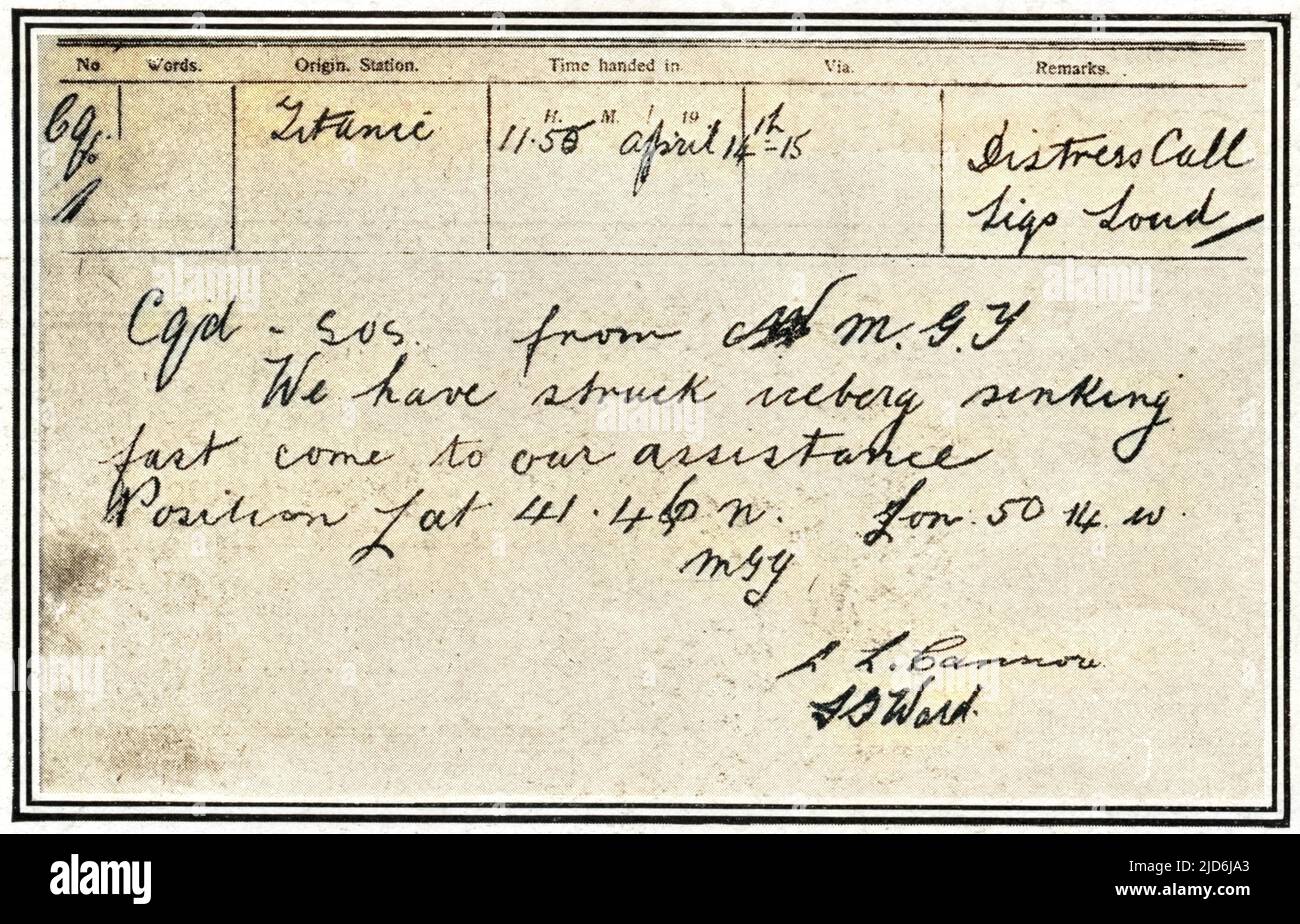 No. Words. Origin. Station. Time handed in. Via. Remarks.
H. M. / 19
Titanic 11.50 April 14th-15 Distress Call
Sigs Loud
Cqd - SOS. from M.G.Y
We have struck iceberg sinking
fast come to our assistance
Position Lat 41.46 n. Lon. 50 14 w.
MGY
Ward.
alamy
Image ID: 2JD6JA3
www.alamy.com